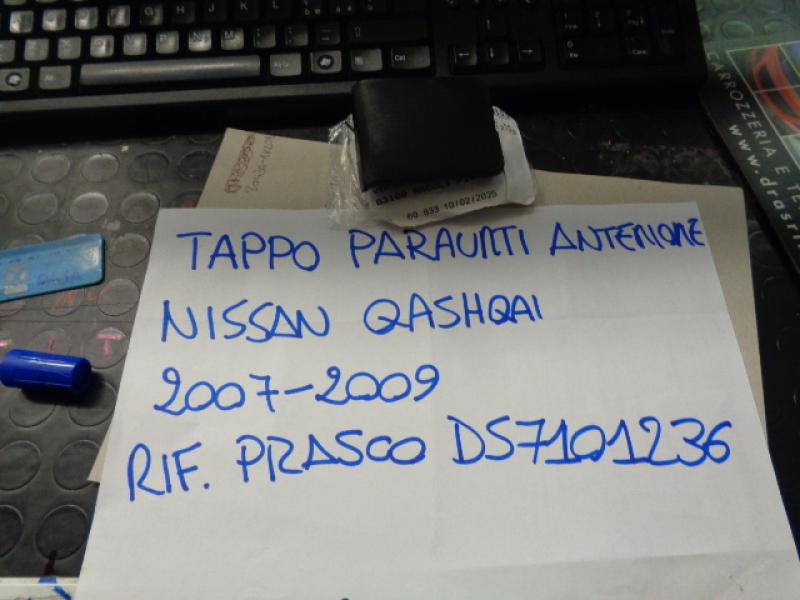 63100 ASCOLI P
60 833 10/02/2025
TAPPO PARAURTI ANTERIORE
NISSAN QASHQAI
2007-2009
RIF. PRASCO DS7101236
CARROZZERIA E TE
www.drasri